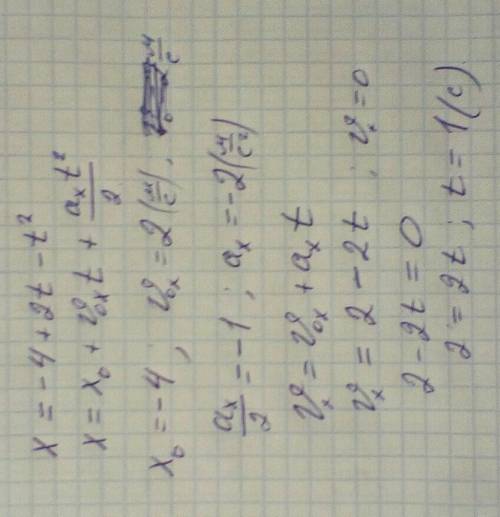 x = -4 + 2t - t²
x = x₀ + v₀ₓt + aₓt²/2
x₀ = -4 ; v₀ₓ = 2 (м/с), м/с
aₓ/2 = -1 ; aₓ = -2 (м/с²)
vₓ = v₀ₓ + aₓt
vₓ = 2 - 2t ; vₓ = 0
2 - 2t = 0
2 = 2t ; t = 1 (с)